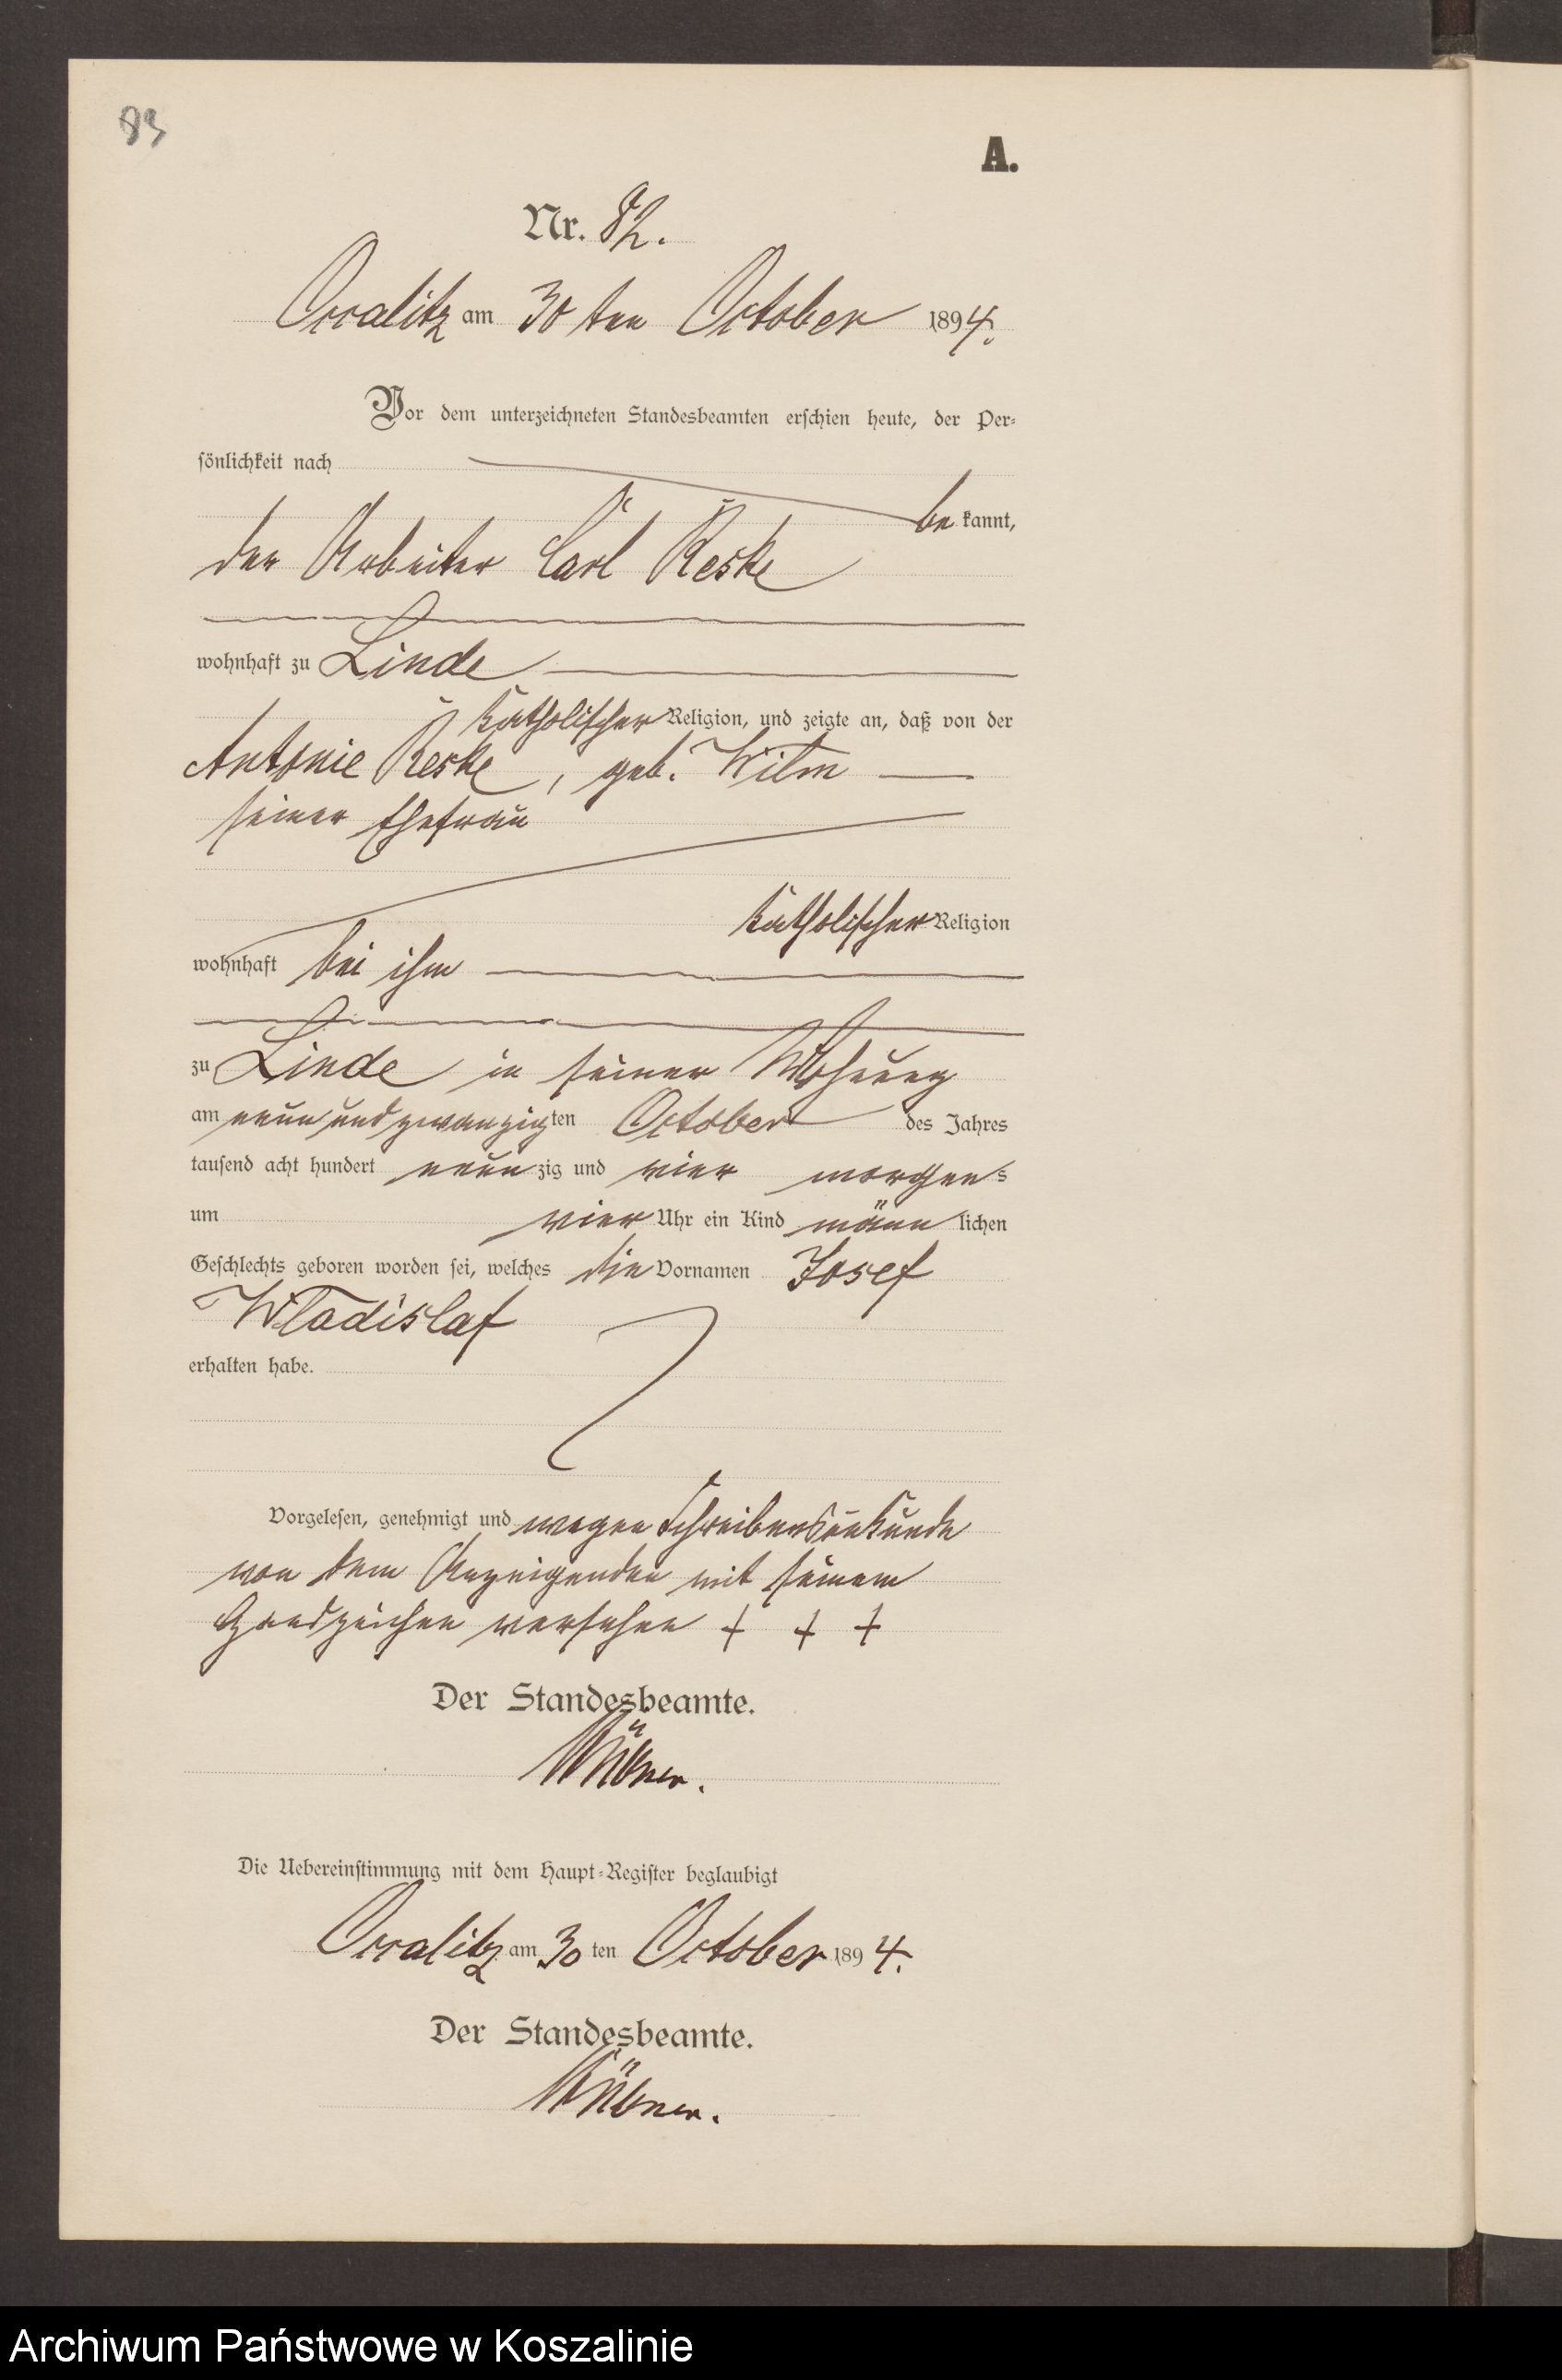 83
A.
Nr. 82.
Occalitz am 30 ten October 1894.
Vor dem unterzeichneten Standesbeamten erschien heute, der Per-
sönlichkeit nach
be kannt,
der Arbeiter Carl Reske
wohnhaft zu Linde
katholischer Religion, und zeigte an, daß von der
Antonie Reske, geb. Wilm
seiner Ehefrau
katholischer Religion
wohnhaft bei ihm
zu Linde in seiner Wohnung
am neun und zwanzigten October des Jahres
tausend acht hundert neunzig und vier morgens
um vier Uhr ein Kind männlichen
Geschlechts geboren worden sei, welches die Vornamen Josef
Wladislaf
erhalten habe.
Vorgelesen, genehmigt und wegen Schreibensunkunde
von dem Anzeigenden mit seinem
Handzeichen versehen + + +
Der Standesbeamte.
Die Uebereinstimmung mit dem Haupt-Register beglaubigt
Occalitz am 30 ten October 1894.
Der Standesbeamte.
Archiwum Państwowe w Koszalinie